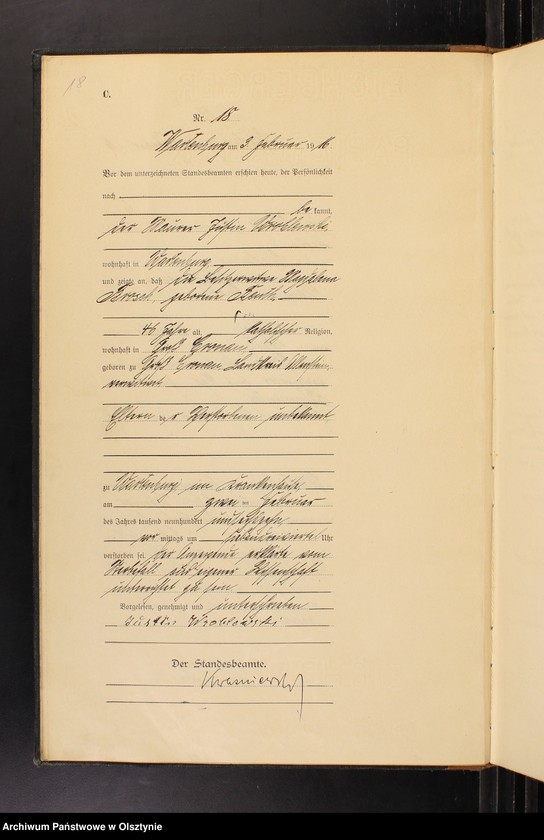 18
C.
Nr. 18
Wartenburg am 3. Februar 1916
Vor dem unterzeichneten Standesbeamten erschien heute, der Persönlichkeit
nach
be kannt,
der Maurer
wohnhaft in Wartenburg
und zeigte an, daß die
geborene
46 Jahre alt, katholischer Religion,
wohnhaft in Groß
geboren zu Groß Landkreis Allenstein
verwitwet
Eltern der Verstorbenen unbekannt
zu Wartenburg im Krankenhause
am zwei ten Februar
des Jahres tausend neunhundert und sechzehn
vor mittags um Uhr
verstorben sei. Der Anzeigende erklärte vom
Sterbefall aus eigener Wissenschaft
unterrichtet zu sein.
Vorgelesen, genehmigt und unterschrieben
Der Standesbeamte.
Archiwum Państwowe w Olsztynie